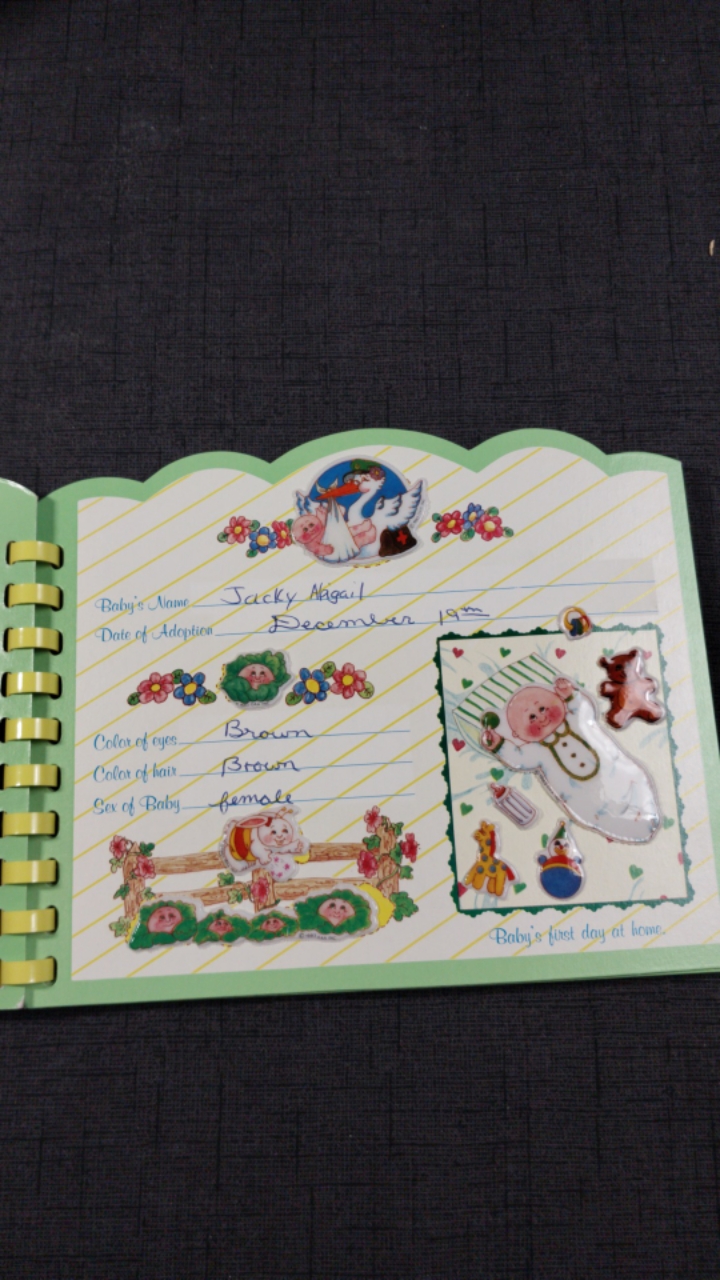 Baby's Name Jacky Abigail
Date of Adoption December 19th
Color of eyes Brown
Color of hair Brown
Sex of Baby female
Baby's first day at home.